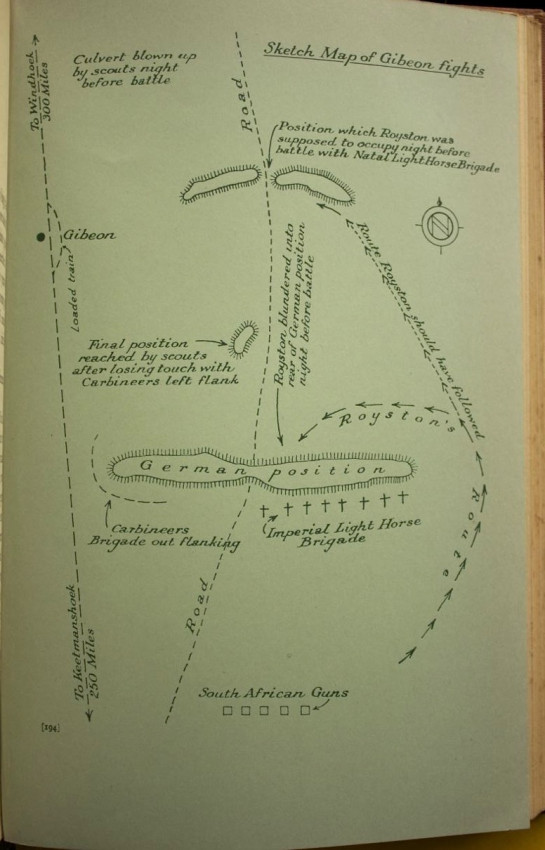 Sketch Map of Gibeon fights
To Windhoek
300 Miles
Culvert blown up
by scouts night
before battle
Road
Position which Royston was
supposed to occupy night before
battle with Natal Light Horse Brigade
N
Gibeon
Loaded train
Route Royston should have followed
Royston blundered into
rear of German position
night before battle
Final position
reached by scouts
after losing touch with
Carbineers left flank
Royston's
Route
German position
Carbineers
Brigade out flanking
Imperial Light Horse
Brigade
Road
To Keetmanshoek
250 Miles
South African Guns
[194]